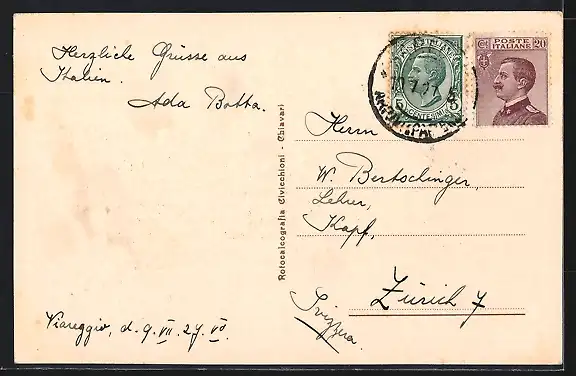 Herzliche Grüsse aus
Italien.
Ada Botta.
Viareggio, d. 9. VII. 27.
Rotocalcografia Civicchioni - Chiavari
POSTE
ITALIANE 20
5 5
CENTESIMI
Herrn
W. Bertschinger,
Lehrer,
Kapf,
Zürich 7
Svizzera.